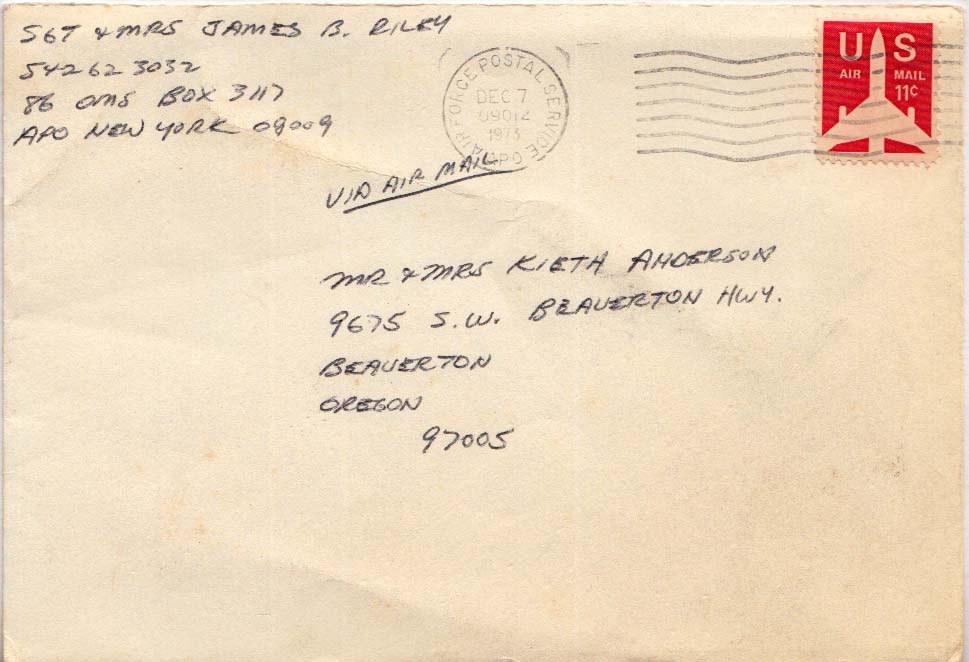 SGT & MRS JAMES B. RILEY
542 62 3032
86 OMS BOX 3117
APO NEW YORK 09009
AIR FORCE POSTAL SERVICE
DEC 7
09012
1973
APO
U S
AIR MAIL
11c
VIA AIR MAIL
MR & MRS KIETH ANDERSON
9675 S.W. BEAVERTON HWY.
BEAVERTON
OREGON
97005